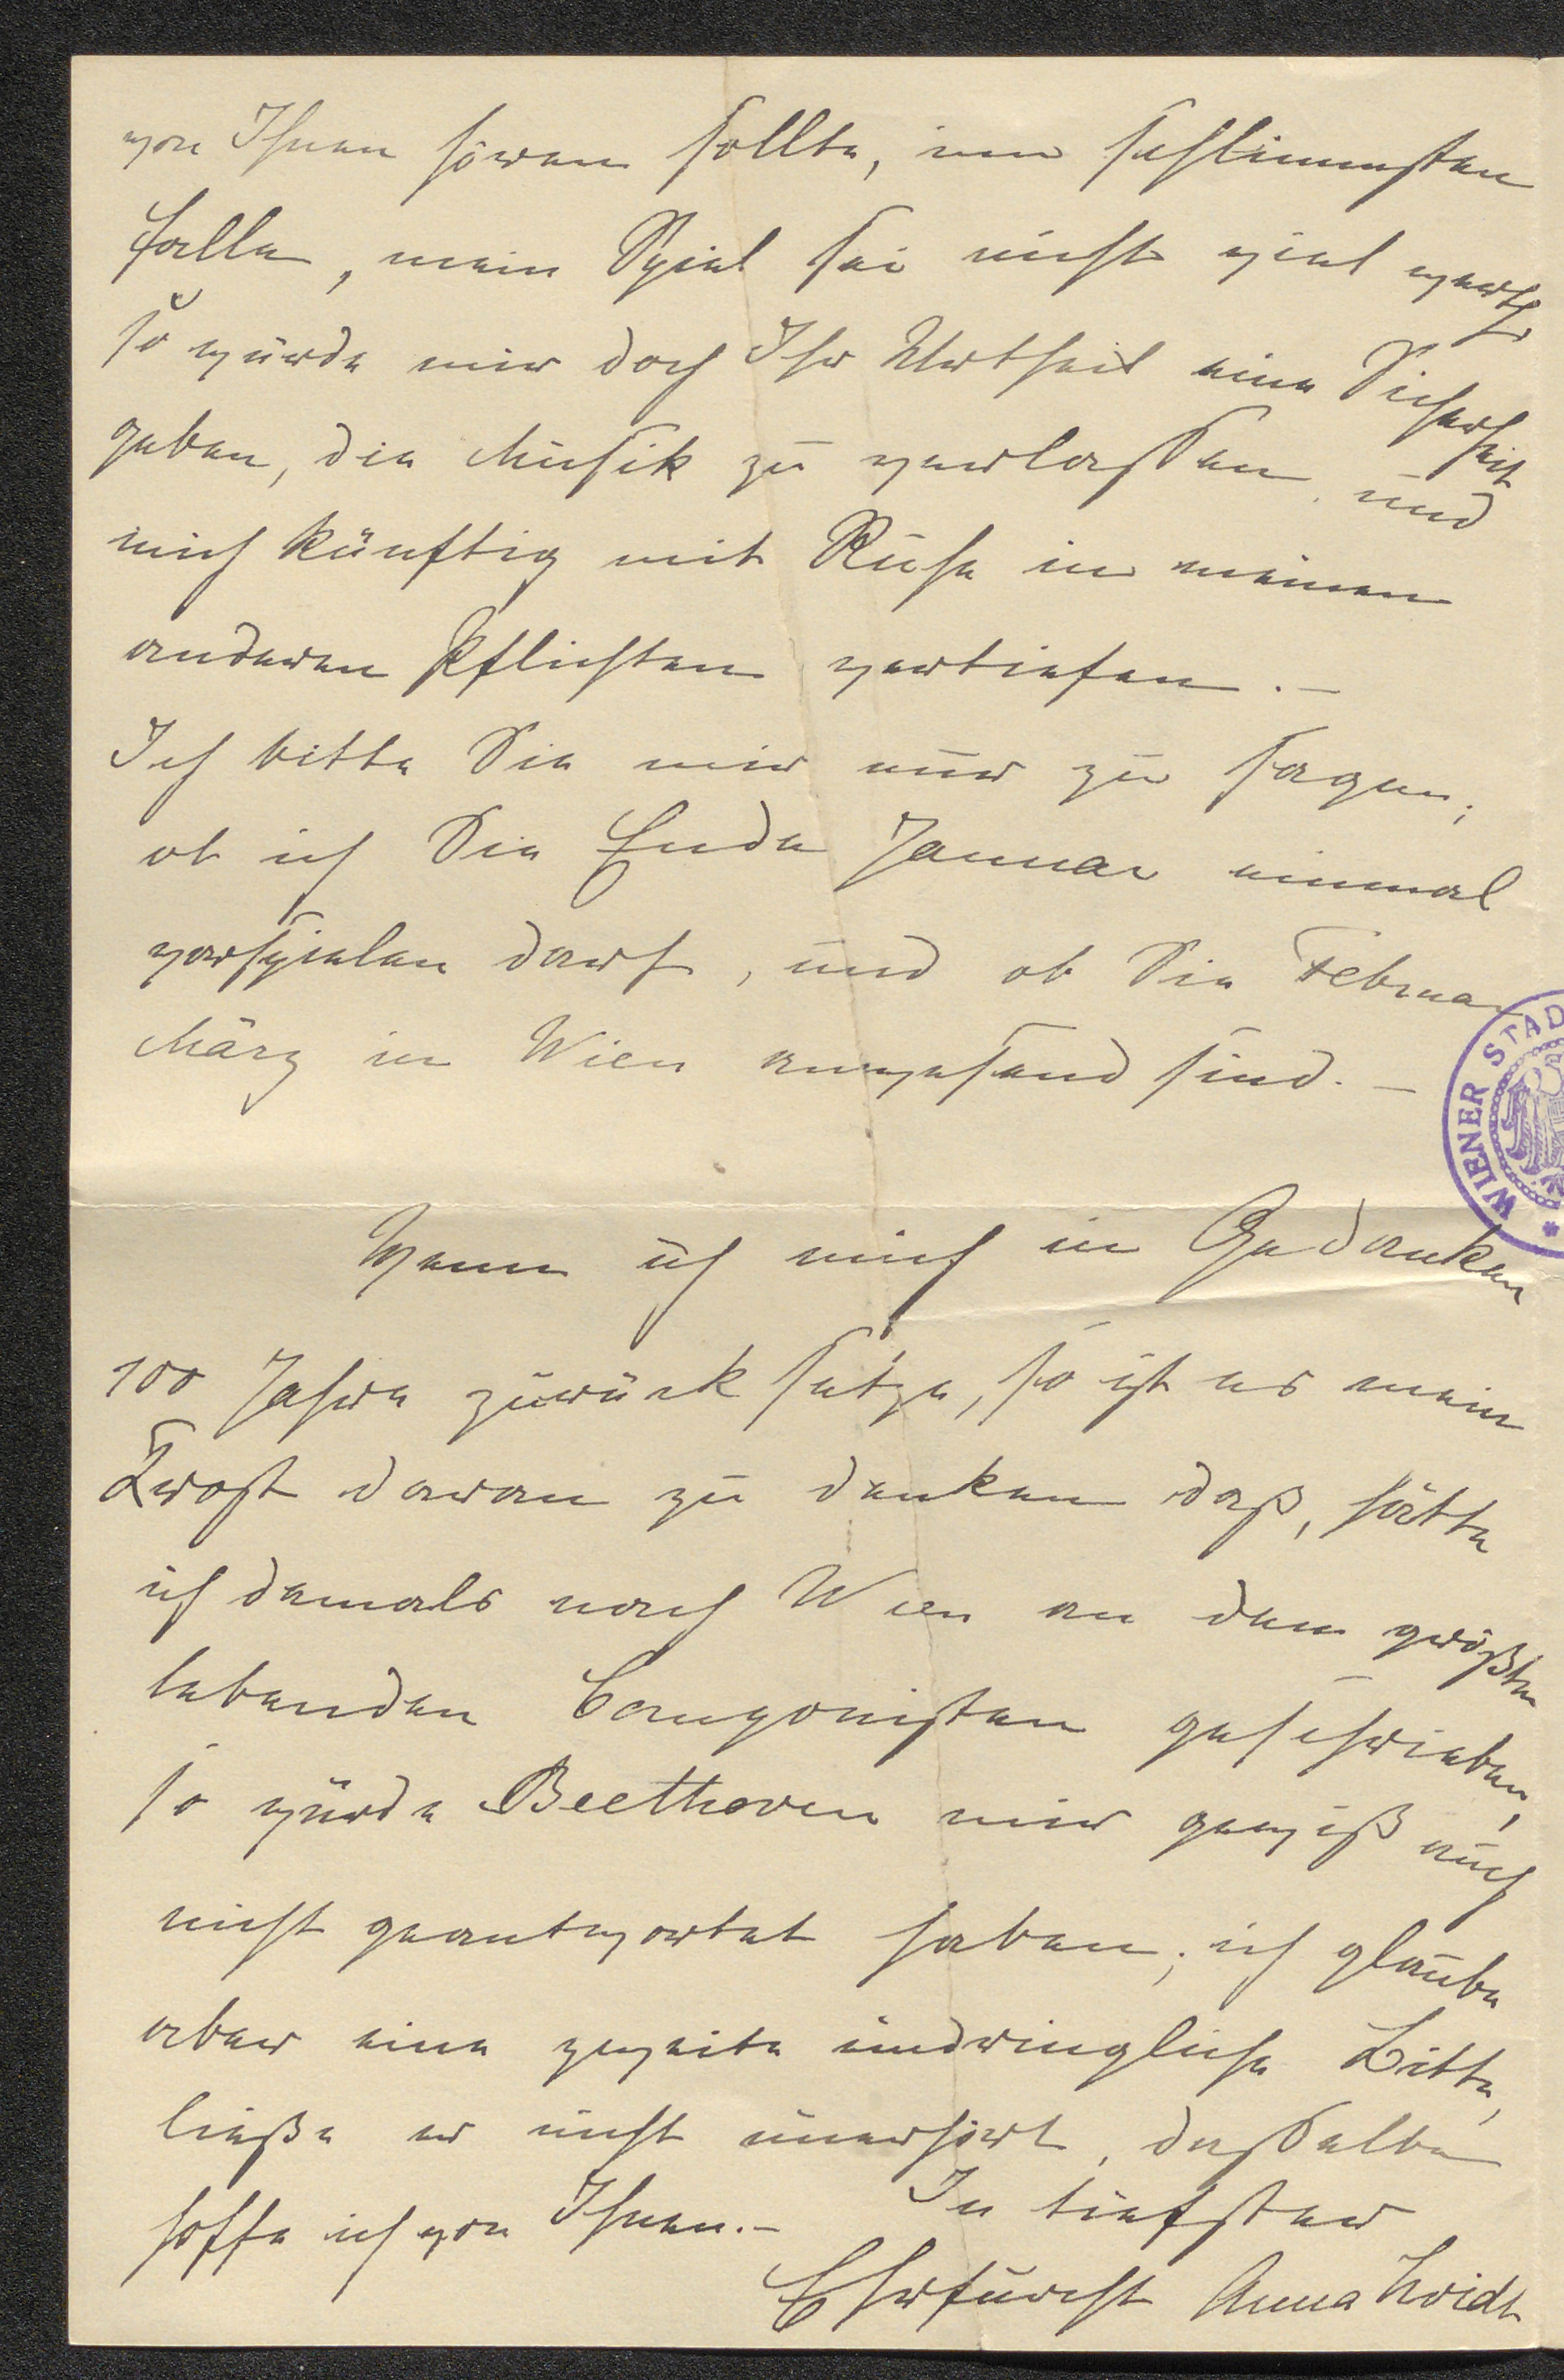 von Ihnen hören sollte, im schlimmsten
Falle, mein Spiel sei nicht viel werth,
so würde mir doch Ihr Urtheil eine Sicherheit
geben, die Musik zu verlassen und
mich künftig mit Ruhe in meinen
anderen Pflichten vertiefen. –
Ich bitte Sie mir nur zu sagen,
ob ich Sie Ende Januar einmal
vorspielen darf, und ob Sie Februar
März in Wien anwesend sind. –
WIENER STAD
Wenn ich mich in Gedanken
100 Jahre zurück setze, so ist es mein
Trost daran zu denken daß, hätte
ich damals nach Wien an den größten
lebenden Componisten geschrieben,
so würde Beethoven mir gewiß auch
nicht geantwortet haben; ich glaube
aber eine zweite eindringliche Bitte,
ließe er nicht unerhört, dasselbe
hoffe ich von Ihnen. – In tiefster
Ehrfurcht Anna